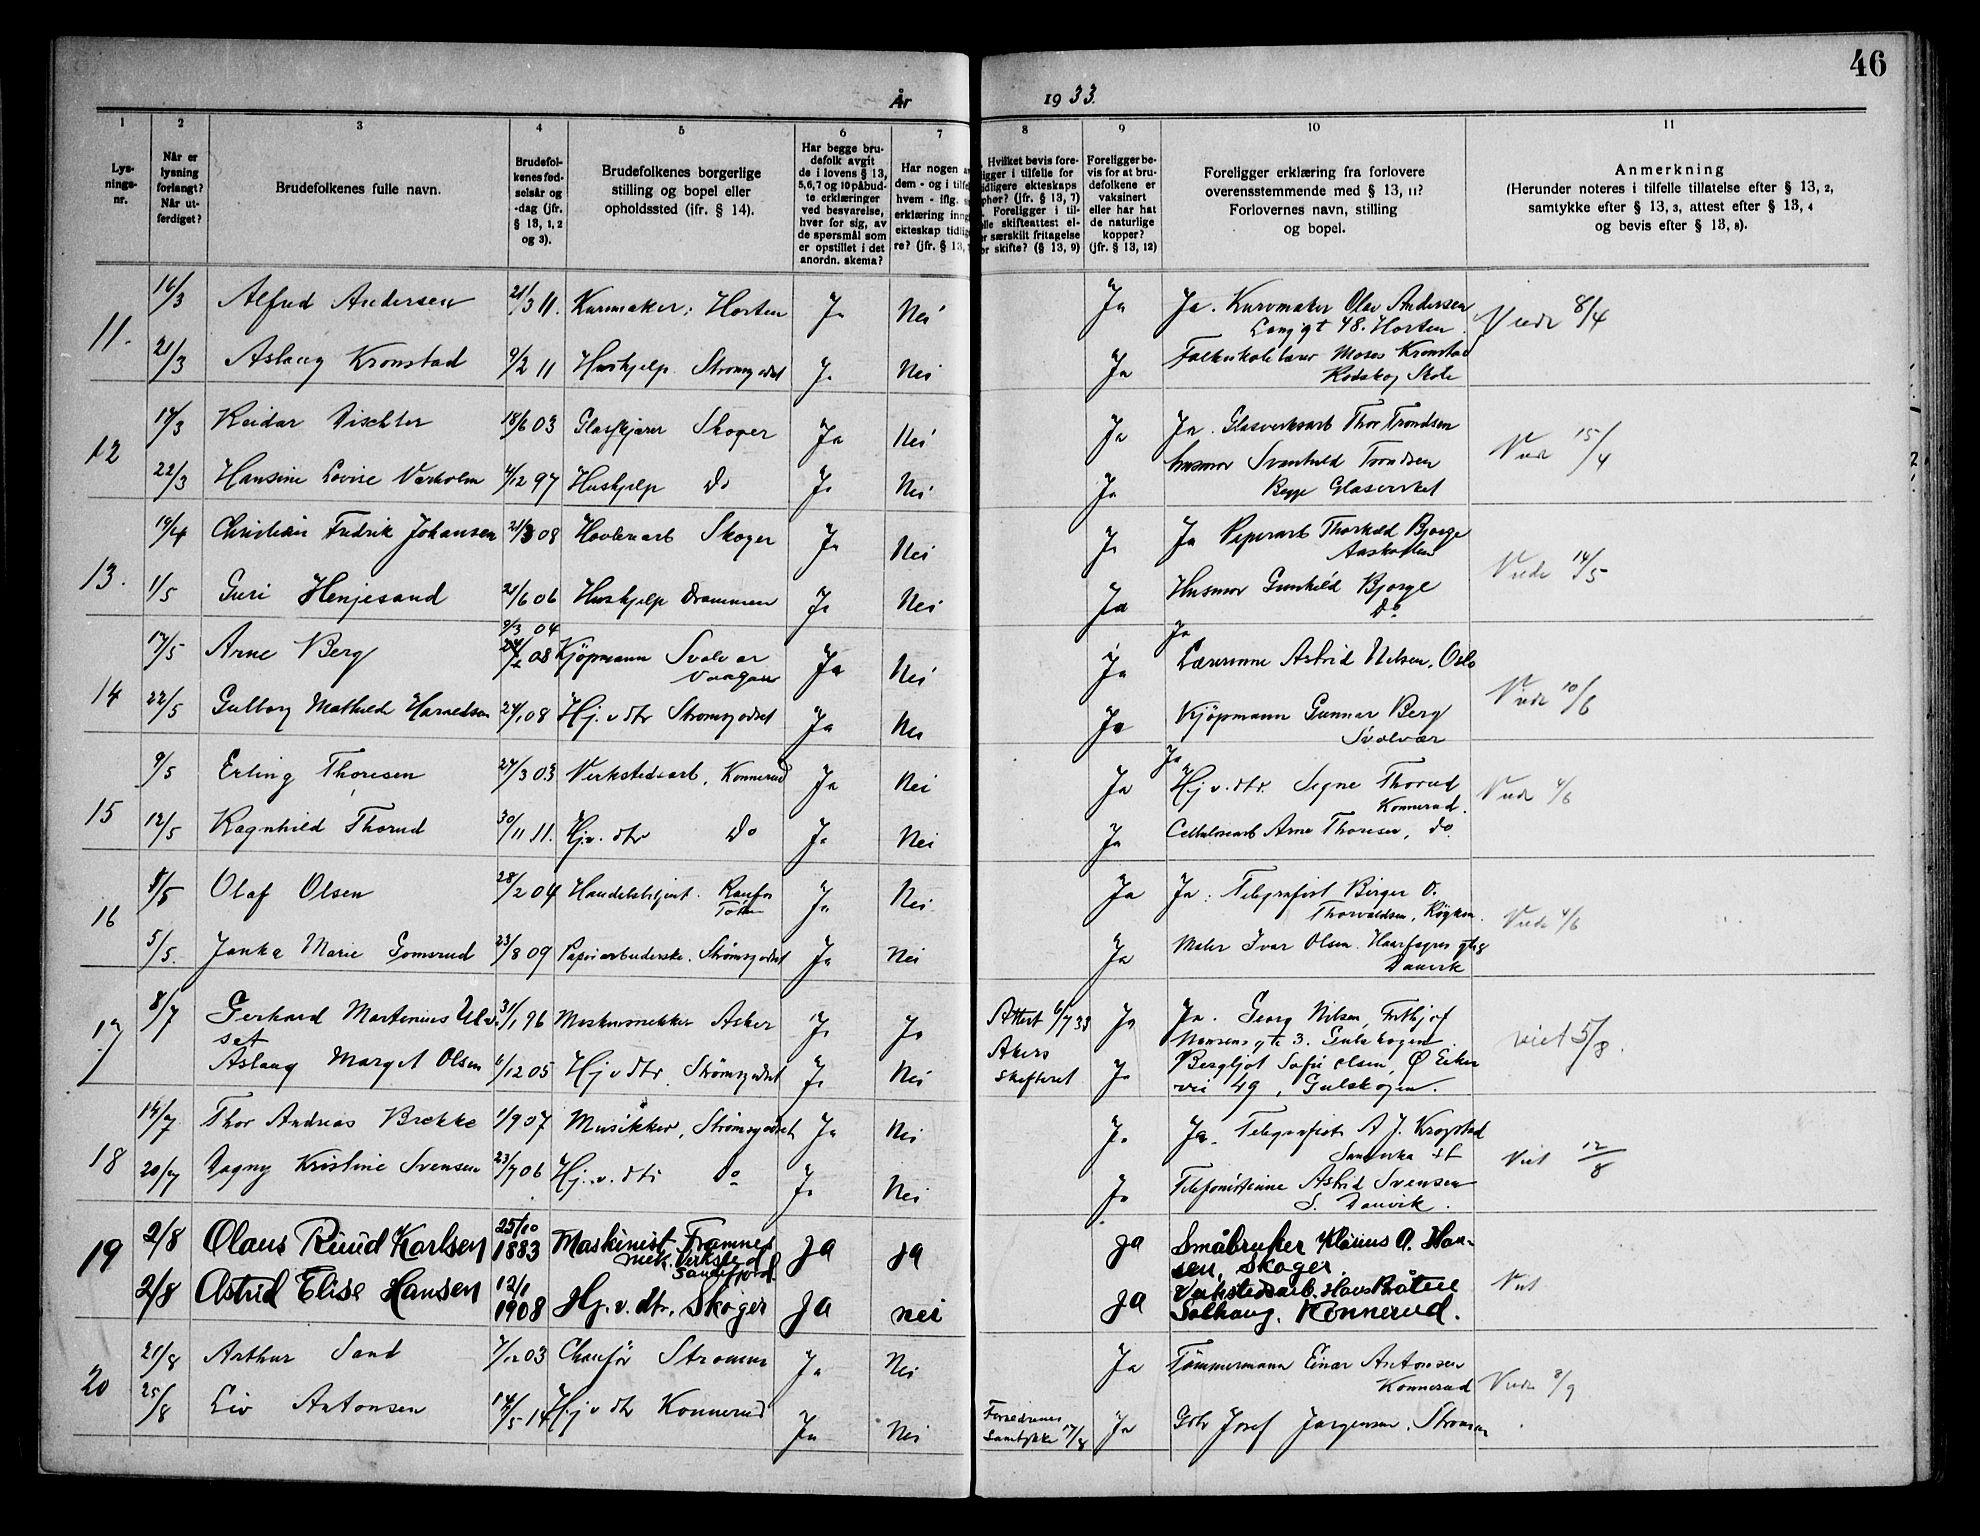 46
År 1933.
1 2 3 4 5 6 7 8 9 10 11
Lysningsnr.
Når er lysning forlangt? Når utferdiget?
Brudefolkenes fulle navn.
Brudefolkenes fødselsår og -dag (jfr. § 13, 1, 2 og 3).
Brudefolkenes borgerlige stilling og bopel eller opholdssted (jfr. § 14).
Har begge brudefolk avgit de i lovens § 13, 5, 6, 7 og 10 påbudte erklæringer ved besvarelse, hver for sig, av de spørsmål som er opstillet i det anordn. skema?
Har nogen
dem - og i tilfe
hvem - iflg.
erklæring inng
ekteskap tidlig
re? (jfr. § 13,
Hvilket bevis fore-
ligger i tilfelle for
tidligere ekteskaps
ophør? (jfr. § 13, 7)
Foreligger i til-
elle skifteattest el-
er særskilt fritagelse
or skifte? (§ 13, 9)
Foreligger bevis for at brudefolkene er vaksinert eller har hat de naturlige kopper? (jfr. § 13, 12)
Foreligger erklæring fra forlovere overensstemmende med § 13, 11? Forlovernes navn, stilling og bopel.
Anmerkning
(Herunder noteres i tilfelle tillatelse efter § 13, 2, samtykke efter § 13, 3, attest efter § 13, 4 og bevis efter § 13, 8).
11. 16/3 Alfred Andersen 21/3 11. Kurvmaker, Horten Ja Nei Ja Ja. Kurvmaker Olav Andersen
Langgt 48. Horten Viede 8/4
21/3 Aslaug Kronstad 9/2 11 Huskjelp Strømsgodset Ja Nei Ja Folkeskolelærer Moses Kronstad
Skole
12 17/3 Reidar Dischler 18/6 03 Glasskjærer Skoger Ja Nei Ja Ja. Glasverksarb Thor Trondsen Viede 15/4
22/3 Hansine Lovise Varholm 4/12 97 Huskjelp Do Ja Nei Ja husmor Svanhild Trondsen
Begge Glasverket
13. 19/4 Christian Fredrik Johansen 21/3 08 Høvleriarb Skoger Ja Nei Ja Ja Papirarb Thorkild Bjorge
Viede 14/5
1/5 Guri Henjesand 21/6 06 Huskjelp Drammen Ja Nei Ja Husmor Gunhild Bjorge
Do
9/3 04
14 17/5 Arne Berg 08 Kjøpmann Svolvær
Vaagan Ja Nei Ja Ja
Lærerinne Astrid Nilsen, Oslo Viede 10/6
22/5 Gulborg Mathilde Haraldsen 24/1 08 Hj. v dtr Strømsgodset Ja Nei Ja Kjøpmann Gunnar Berg
Svolvær
15 9/5 Erling Thoresen 27/3 03 Verkstedsarb, Konnerud Ja Nei Ja Ja
Hj. v. dtr. Signe Thorud
Konnerud. Viede 4/6
12/5 Ragnhild Thorud 30/11 11. Hj.v. dtr Do Ja Nei Ja Cellulosearb Arne Thoresen, do
16 5/5 Olaf Olsen 28/2 04 Handelsbetjent. Raufos
Toten Ja Nei Ja Ja. Telegrafist Birger O.
Thorvaldsen, Røyken. Viede 4/6
5/5. Janka Marie Gomsrud 23/8 09 Papirarbeiderske. Strømsgodset Ja Nei Ja Maler Ivar Olsen. Haarfagres gt 8
Danvik
17 8/7 Gerhard Martenius Ulv
set 31/1 96 Maskinsnekker Asker Ja Ja Attest 6/7 33
Akers
skifteret Ja Ja. Georg Nilsen, Fritjof
Nansens gt. 3. Gulskogen viet 5/8.
Aslaug Margit Olsen 6/12 05 Hj v dtr. Strømsgodset Ja Nei Ja Bergljot Sofie Olsen, Ø Eiker
vei 49, Gulskogen.
18 14/7 Thor Andreas Brekke 1/9 07 Musikker, Strømsgodset Ja Nei Ja Ja. Telegrafist A. J. Krogstad
Viet 12/8
20/7 Dagny Kristine Svensen 23/7 06 Hj. v. dtr Do Ja Nei Ja Telefonistinne Astrid Svensen
S. Danvik.
19 2/8 Olaus Ruud Karlsen 25/10
1883 Maskinist Framnes
mek. Verksted
Sandefjord. ja ja ja Småbruker Klaus O. Han-
sen, Skoger.
2/8 Astrid Elise Hansen 12/1
1908 Hj. v. dtr. Skoger ja nei ja Verkstedsarb. Hans Bråten
Solhaug. Konnerud. Viet
20 21/8 Arthur Sand 7/12 03 Chauffør Strømm Ja Nei Ja Tømmermann Einar Antonsen
Konnerud Viede 3/9
25/8 Liv Antonsen 14/5 14 Hj v dtr Konnerud Ja Nei Foreldrenes
samtykke 17/8 Ja Gbr Josef Jørgensen. Strømm